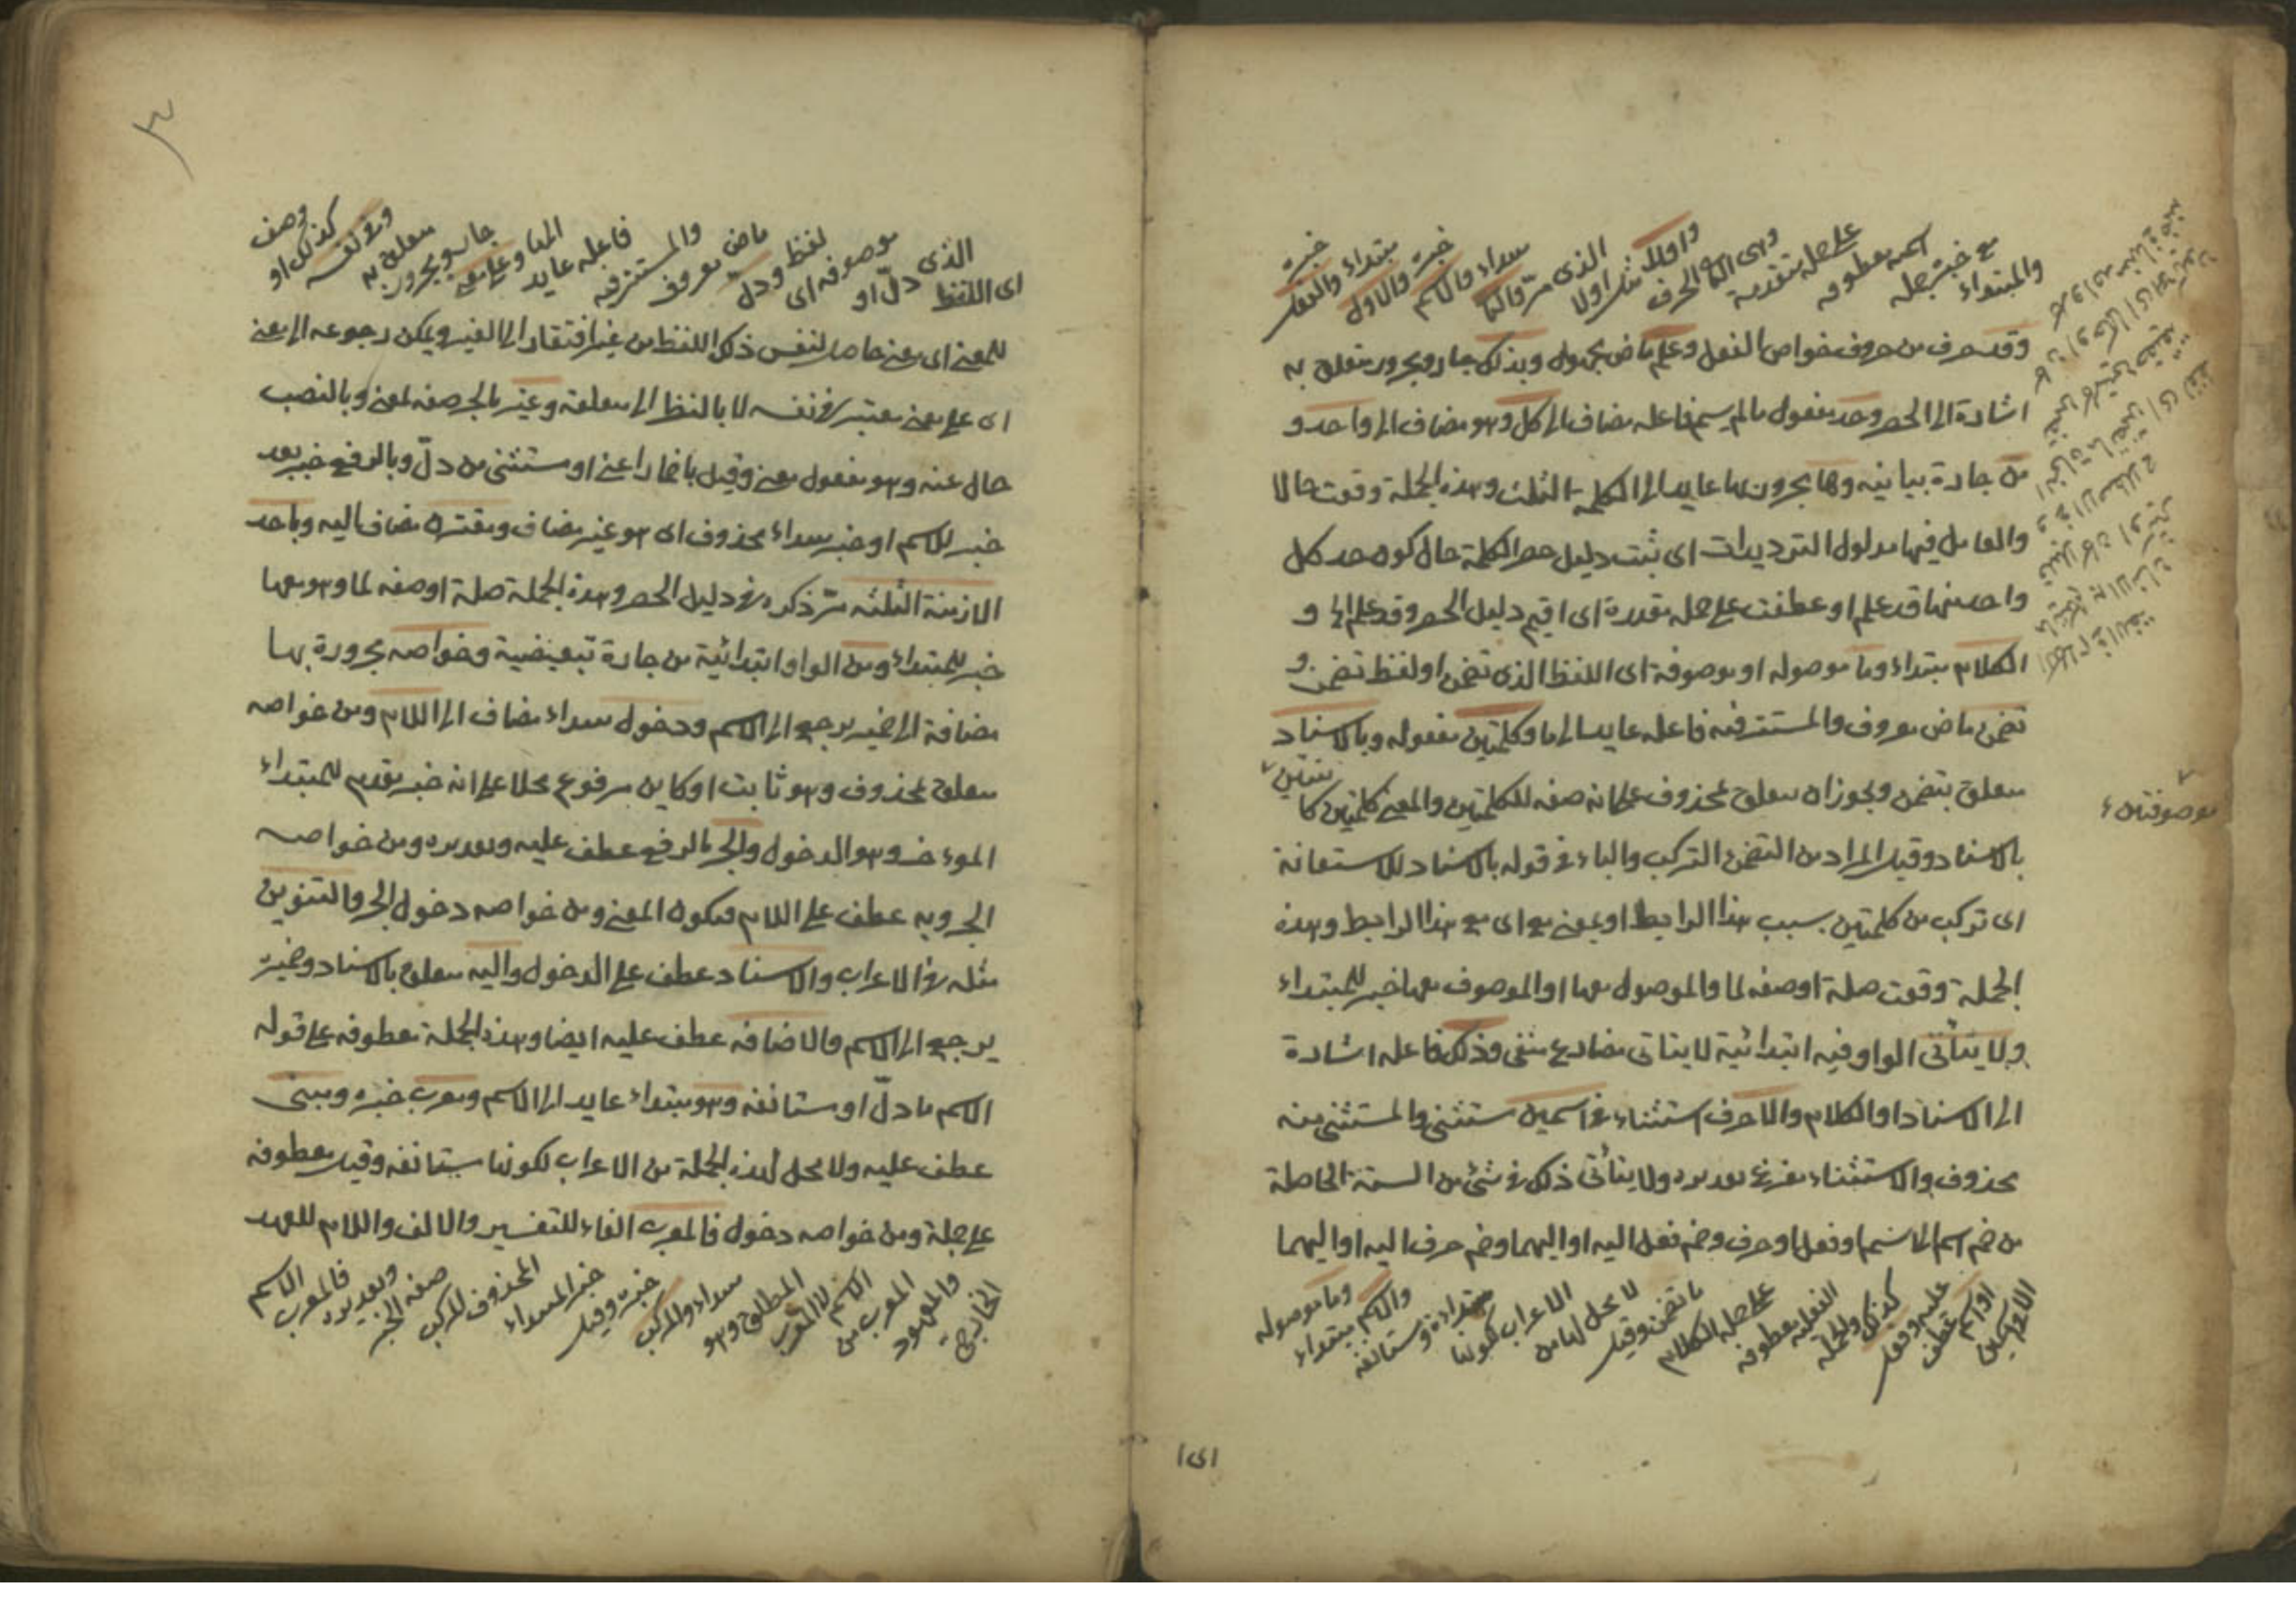 والمبتداء
مع خبره جملة
اسمية معطوفة
على جملة متقدمة
وهى الثانى الحرف
واولئك
الذى مرّ والثانى
مبتداء والاسم
خبره والاول
مبتداء والفعل
خبره
وقد حرف من حروف خواص الفعل وعلم ماض مجهول وبذلك جار ومجرور متعلق به
اشارة الى الحصر وحد مفعول مالم يسم فاعله مضاف الى كل وهو مضاف الى واحد و
من جارة بيانية وها مجرور بها عايد الى الكلمة الثلث وهذه الجملة وقعت حالا
والعامل فيها مدلول الترديدات اى ثبت دليل حصر الكلمة حال كون حد كل
واحد منها قد علم او عطفت على جملة مقدرة اى اقيم دليل الحصر وقد علم الخ و
الكلام مبتداء وما موصولة او موصوفة اى اللفظ الذى تضمن او لفظ تضمن و
تضمن ماض معروف والمستتر فيه فاعله عايد الى ما وكلمتين مفعوله وبالاسناد
متعلق بتضمن ويجوز ان يتعلق بمحذوف على انه صفة للكلمتين والمعنى كلمتين كا
ئنتين
موصوفتين
بالاسناد وقيل المراد من التضمن التركب والباء فى قوله بالاسناد للاستعانة
اى تركب من كلمتين بسبب هذا الرابط او بمعنى مع اى مع هذا الرابط وهذه
الجملة وقعت صلة او صفة لما والموصول معها او الموصوف معها خبر للمبتداء
ولا يتأتى الواو فيه ابتدائية لا يتاتى مضارع منفى وذلك فاعله اشارة
الى الاسناد او الكلام والا حرف استثناء فى اسمين مستثنى والمستثنى منه
محذوف والاستثناء مفرغ تقديره ولا يتأتى ذلك فى شئ من الستة الحاصلة
من ضم اسم الى اسم او فعل او حرف وضم فعل اليه او اليهما وضم حرف اليه او اليهما
الا فى اسمين
او اسم عطف
عليه وفعل
كذلك والجملة
الفعلية معطوفة
على جملة الكلام
ما تضمن وقيل
لا محل لها من
الاعراب لكونها
مبتداءة مستانفة
والاسم مبتداء
وما موصولة
اى ا
اى اللفظ
الذى دلّ او
موصوفة اى
لفظ ودلّ
ماض معروف
والمستتر فيه
فاعله عايد
الى ما وعلى معنى
جار ومجرور
متعلق به
وفى نفسه
كذلك او
صفة
للمعنى اى معنى حاصل لنفس ذلك اللفظ من غير افتقار الى الغير ويمكن رجوعه الى معنى
اى على معنى معتبر فى نفسه لا بالنظر الى متعلقه وغير بالجر صفة لمعنى وبالنصب
حال عنه وهو مفعول معنى وقيل باضمار اعنى او مستثنى من دلّ وبالرفع خبر بعد
خبر للاسم او خبر مبتداء محذوف اى هو غير مضاف ومقترن مضاف اليه وباحد
الازمنة الثلثة مرّ ذكره فى دليل الحصر وهذه الجملة صلة او صفة لما وهو معها
خبر للمبتداء ومن الواو ابتدائية من جارة تبعيضية وخواصه مجرورة بها
مضافة الى ضمير يرجع الى الاسم ودخول مبتداء مضاف الى اللام ومن خواصه
متعلق بمحذوف وهو ثابت او كاين مرفوع محلا على انه خبر مقدم للمبتداء
الموءخر وهو الدخول والجر بالرفع عطف عليه وتقديره ومن خواصه
الجر وبه عطف على اللام فيكون المعنى ومن خواصه دخول الجر والتنوين
مثله فى الاعراب والاسناد عطف على الدخول واليه متعلق بالاسناد وضميره
يرجع الى الاسم والاضافة عطف عليه ايضا وهذه الجملة معطوفة على قوله
الاسم ما دلّ او مستانفة وهو مبتداء عايد الى الاسم ومعرب خبره ومبنى
عطف عليه ولا محل لهذه الجملة من الاعراب لكونها مستانفة وقيل معطوفة
على جملة ومن خواصه دخول فالمعرب الفاء للتفسير والالف واللام للعهد
الخارجى
والمعهود
المعرب من
الاسم لا المعرب
المطلق وهو
مبتداء والمركب
خبره وقيل
خبر المبتداء
المحذوف المركب
صفة الخبر
وتقديره
فالمعرب الاسم